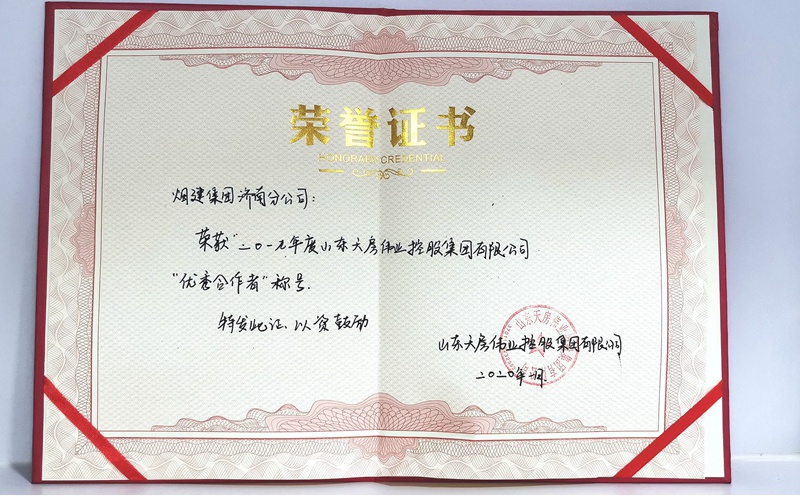 荣誉证书
HONORARY CREDENTIAL
烟建集团济南分公司:
荣获"二〇一九年度山东天房伟业控股集团有限公司
"优秀合作者"称号.
特发此证,以资鼓励
山东天房伟业控股集团有限公司
二〇二〇年一月